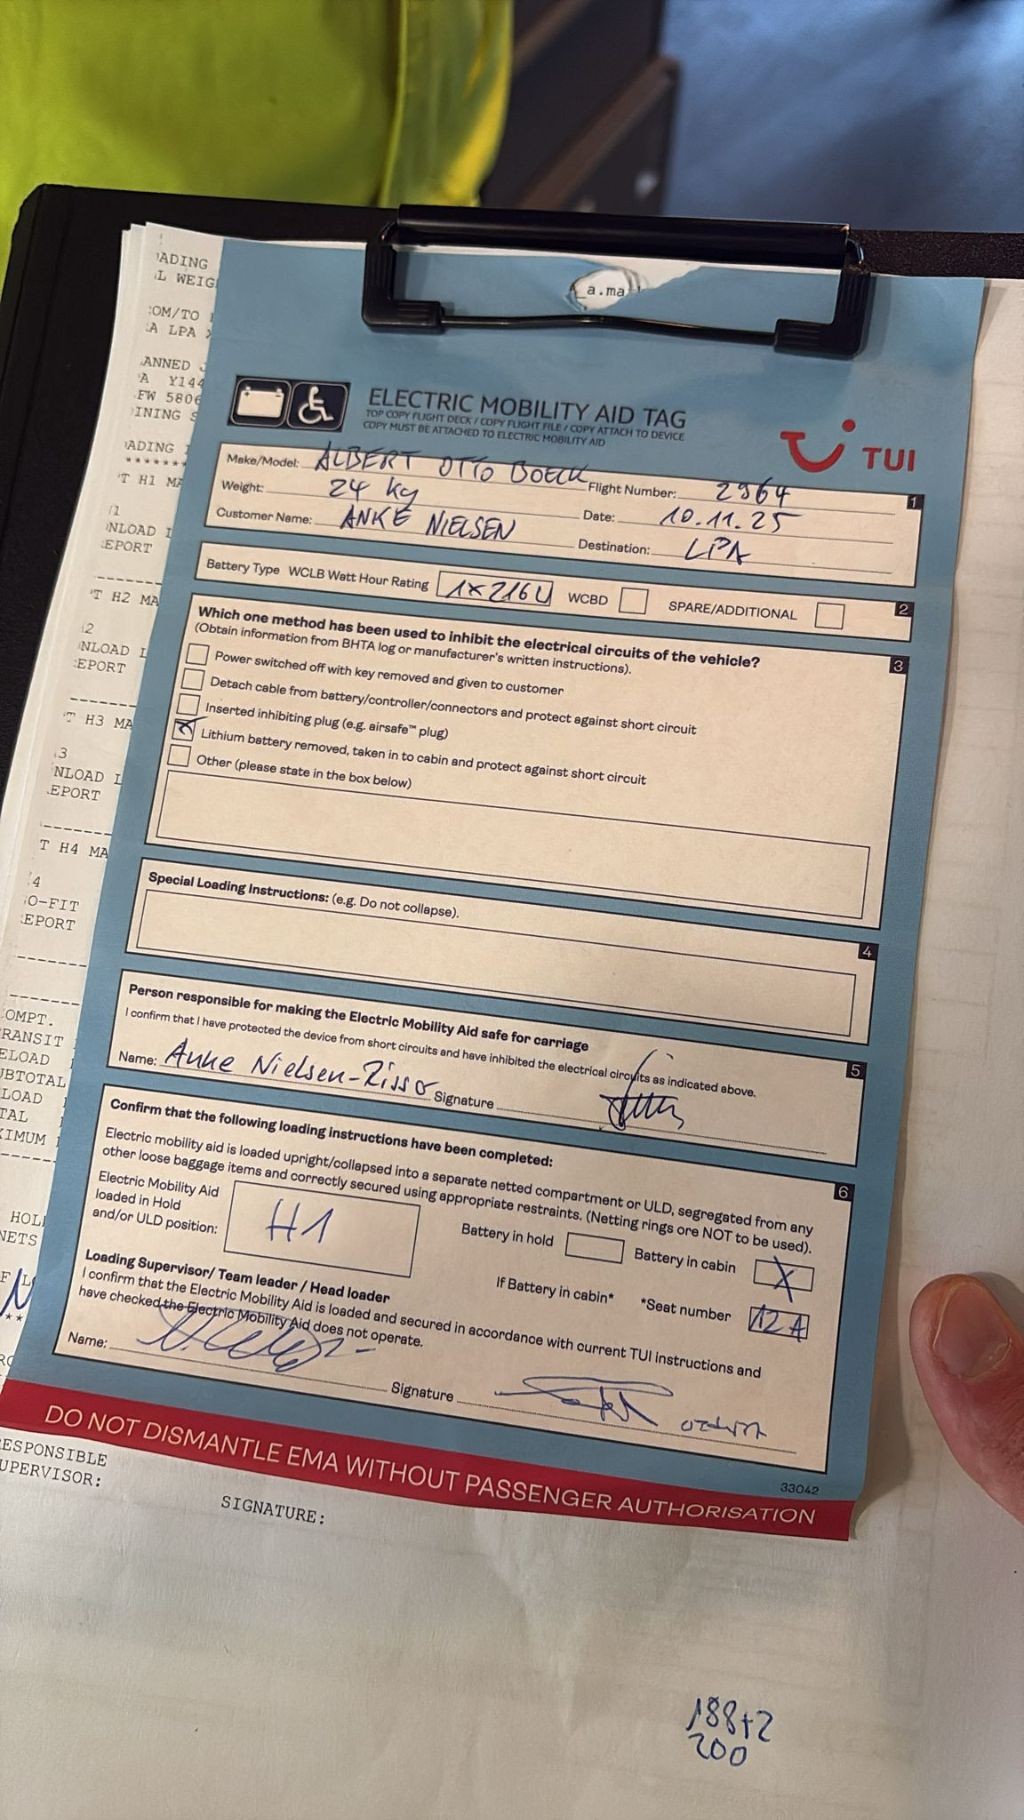 ADING
L WEIG
OM/TO
A LPA
ANNED
A Y144
FW 5806
INING S
ADING
*******
T H1 MA
NLOAD I
EPORT
T H2 MA
2
NLOAD I
EPORT
T H3 MA
3
NLOAD L
EPORT
T H4 MA
4
O-FIT
EPORT
OMPT.
RANSIT
ELOAD
UBTOTAL
LOAD
TAL
XIMUM
HOL
NETS
a.ma
ELECTRIC MOBILITY AID TAG
TOP COPY FLIGHT DECK / COPY FLIGHT FILE / COPY ATTACH TO DEVICE
COPY MUST BE ATTACHED TO ELECTRIC MOBILITY AID
TUI
1
Make/Model: ALBERT OTTO BOECK Flight Number: 2964
Weight: 24 kg Date: 10.11.25
Customer Name: ANKE NIELSEN Destination: LPA
2
Battery Type WCLB Watt Hour Rating 1x216U WCBD SPARE/ADDITIONAL
3
Which one method has been used to inhibit the electrical circuits of the vehicle?
(Obtain information from BHTA log or manufacturer's written instructions).
Power switched off with key removed and given to customer
Detach cable from battery/controller/connectors and protect against short circuit
Inserted inhibiting plug (e.g. airsafe™ plug)
X Lithium battery removed, taken in to cabin and protect against short circuit
Other (please state in the box below)
4
Special Loading Instructions: (e.g. Do not collapse).
5
Person responsible for making the Electric Mobility Aid safe for carriage
I confirm that I have protected the device from short circuits and have inhibited the electrical circuits as indicated above.
Name: Anke Nielsen-Risso Signature
6
Confirm that the following loading instructions have been completed:
Electric mobility aid is loaded upright/collapsed into a separate netted compartment or ULD, segregated from any
other loose baggage items and correctly secured using appropriate restraints. (Netting rings are NOT to be used).
Electric Mobility Aid
loaded in Hold
and/or ULD position:
H1
Battery in hold Battery in cabin X
If Battery in cabin* *Seat number 12A
Loading Supervisor/ Team leader / Head loader
I confirm that the Electric Mobility Aid is loaded and secured in accordance with current TUI instructions and
have checked the Electric Mobility Aid does not operate.
Name: Signature
33042
DO NOT DISMANTLE EMA WITHOUT PASSENGER AUTHORISATION
ESPONSIBLE
UPERVISOR:
SIGNATURE:
188+2
200